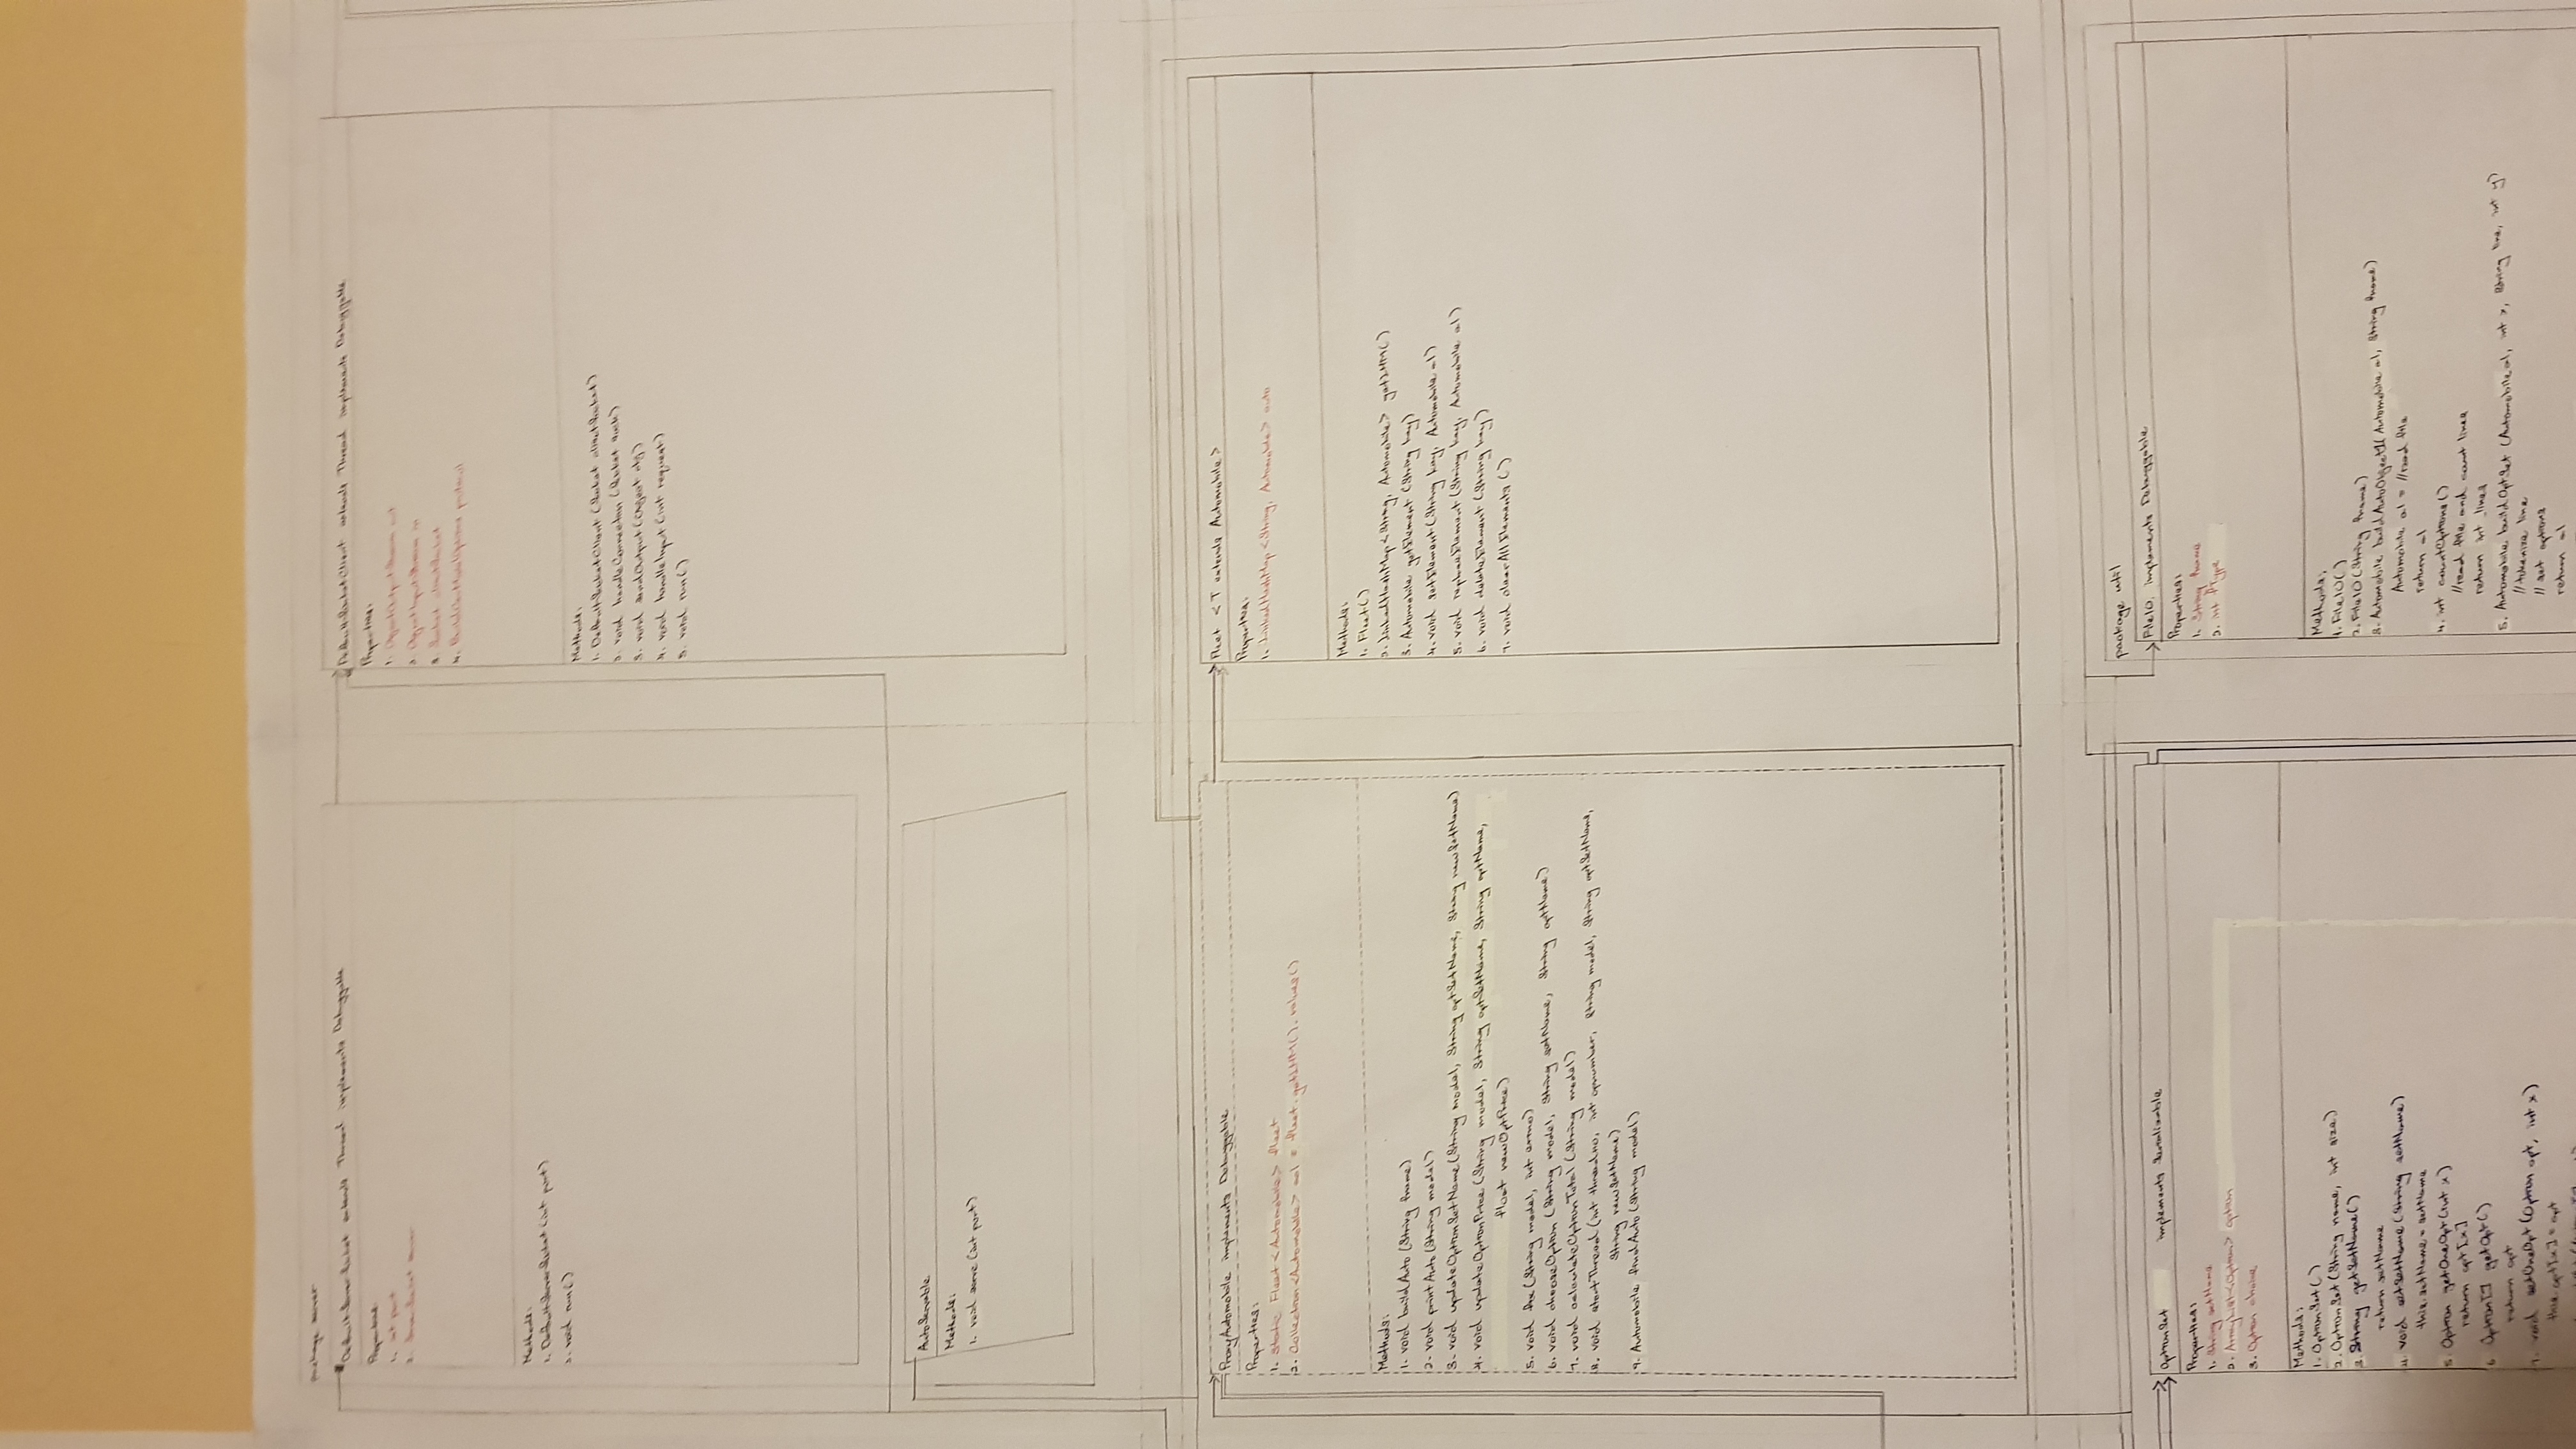 package server
DefaultServerSocket extends Thread implements Debuggable
Properties:
1. int port
2. ServerSocket server
Methods:
1. DefaultServerSocket(int port)
2. void run()
DefaultSocketClient extends Thread implements Debuggable
Properties:
1. ObjectOutputStream out
2. ObjectInputStream in
3. Socket clientSocket
4. BuildCarModelOptions protocol
Methods:
1. DefaultSocketClient (Socket clientSocket)
2. void handleConnection (Socket sock)
3. void sendOutput (Object obj)
4. void handleInput (int request)
5. void run()
AutoServable
Methods:
1. void serve (int port)
ProxyAutomobile implements Debuggable
Properties:
1. static Fleet<Automobile> fleet
2. Collection<Automobile> col = fleet.getLHM().values()
Methods:
1. void buildAuto (String fname)
2. void printAuto (String model)
3. void updateOptionSetName (String model, String optSetName, String newSetName)
4. void updateOptionPrice (String model, String optSetName, String optName,
float newOptPrice)
5. void fix (String model, int errno)
6. void chooseOption (String model, String setName, String optName)
7. void calculateOptionTotal (String model)
8. void startThread (int threadno, int opnumber, String model, String optSetName,
String newSetName)
9. Automobile findAuto (String model)
Fleet <T extends Automobile>
Properties:
1. LinkedHashMap<String, Automobile> auto
Methods:
1. Fleet()
2. LinkedHashMap<String, Automobile> getLHM()
3. Automobile getElement (String key)
4. void setElement (String key, Automobile a1)
5. void replaceElement (String key, Automobile a1)
6. void deleteElement (String key)
7. void clearAllElements ()
OptionSet implements Serializable
Properties:
1. String setName
2. ArrayList<Option> option
3. Option choice
Methods:
1. OptionSet()
2. OptionSet (String name, int size)
3. String getSetName()
return setName
4. void setSetName (String setName)
this.setName = setName
5. Option getOneOpt (int x)
return opt[x]
6. Option[] getOpt()
return opt
7. void setOneOpt (Option opt, int x)
this.opt[x] = opt
package util
FileIO implements Debuggable
Properties:
1. String fname
2. int fType
Methods:
1. FileIO()
2. FileIO (String fname)
3. Automobile buildAutoObject1( Automobile a1, String fname)
Automobile a1 = //read file
return a1
4. int countOptions()
//read file and count lines
return int lines
5. Automobile buildOptSet (Automobile a1, int x, String line, int y)
//tokenize line
// set options
return a1